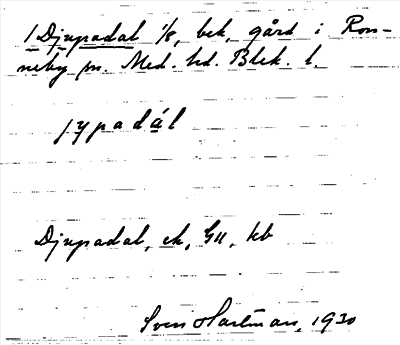 1 Djupadal 1/8, bek. gård i Ron-
neby sn. Med. hd. Blek. l.
jypadál
Djupadal, ek, GU, kb
Sven Hartman, 1930